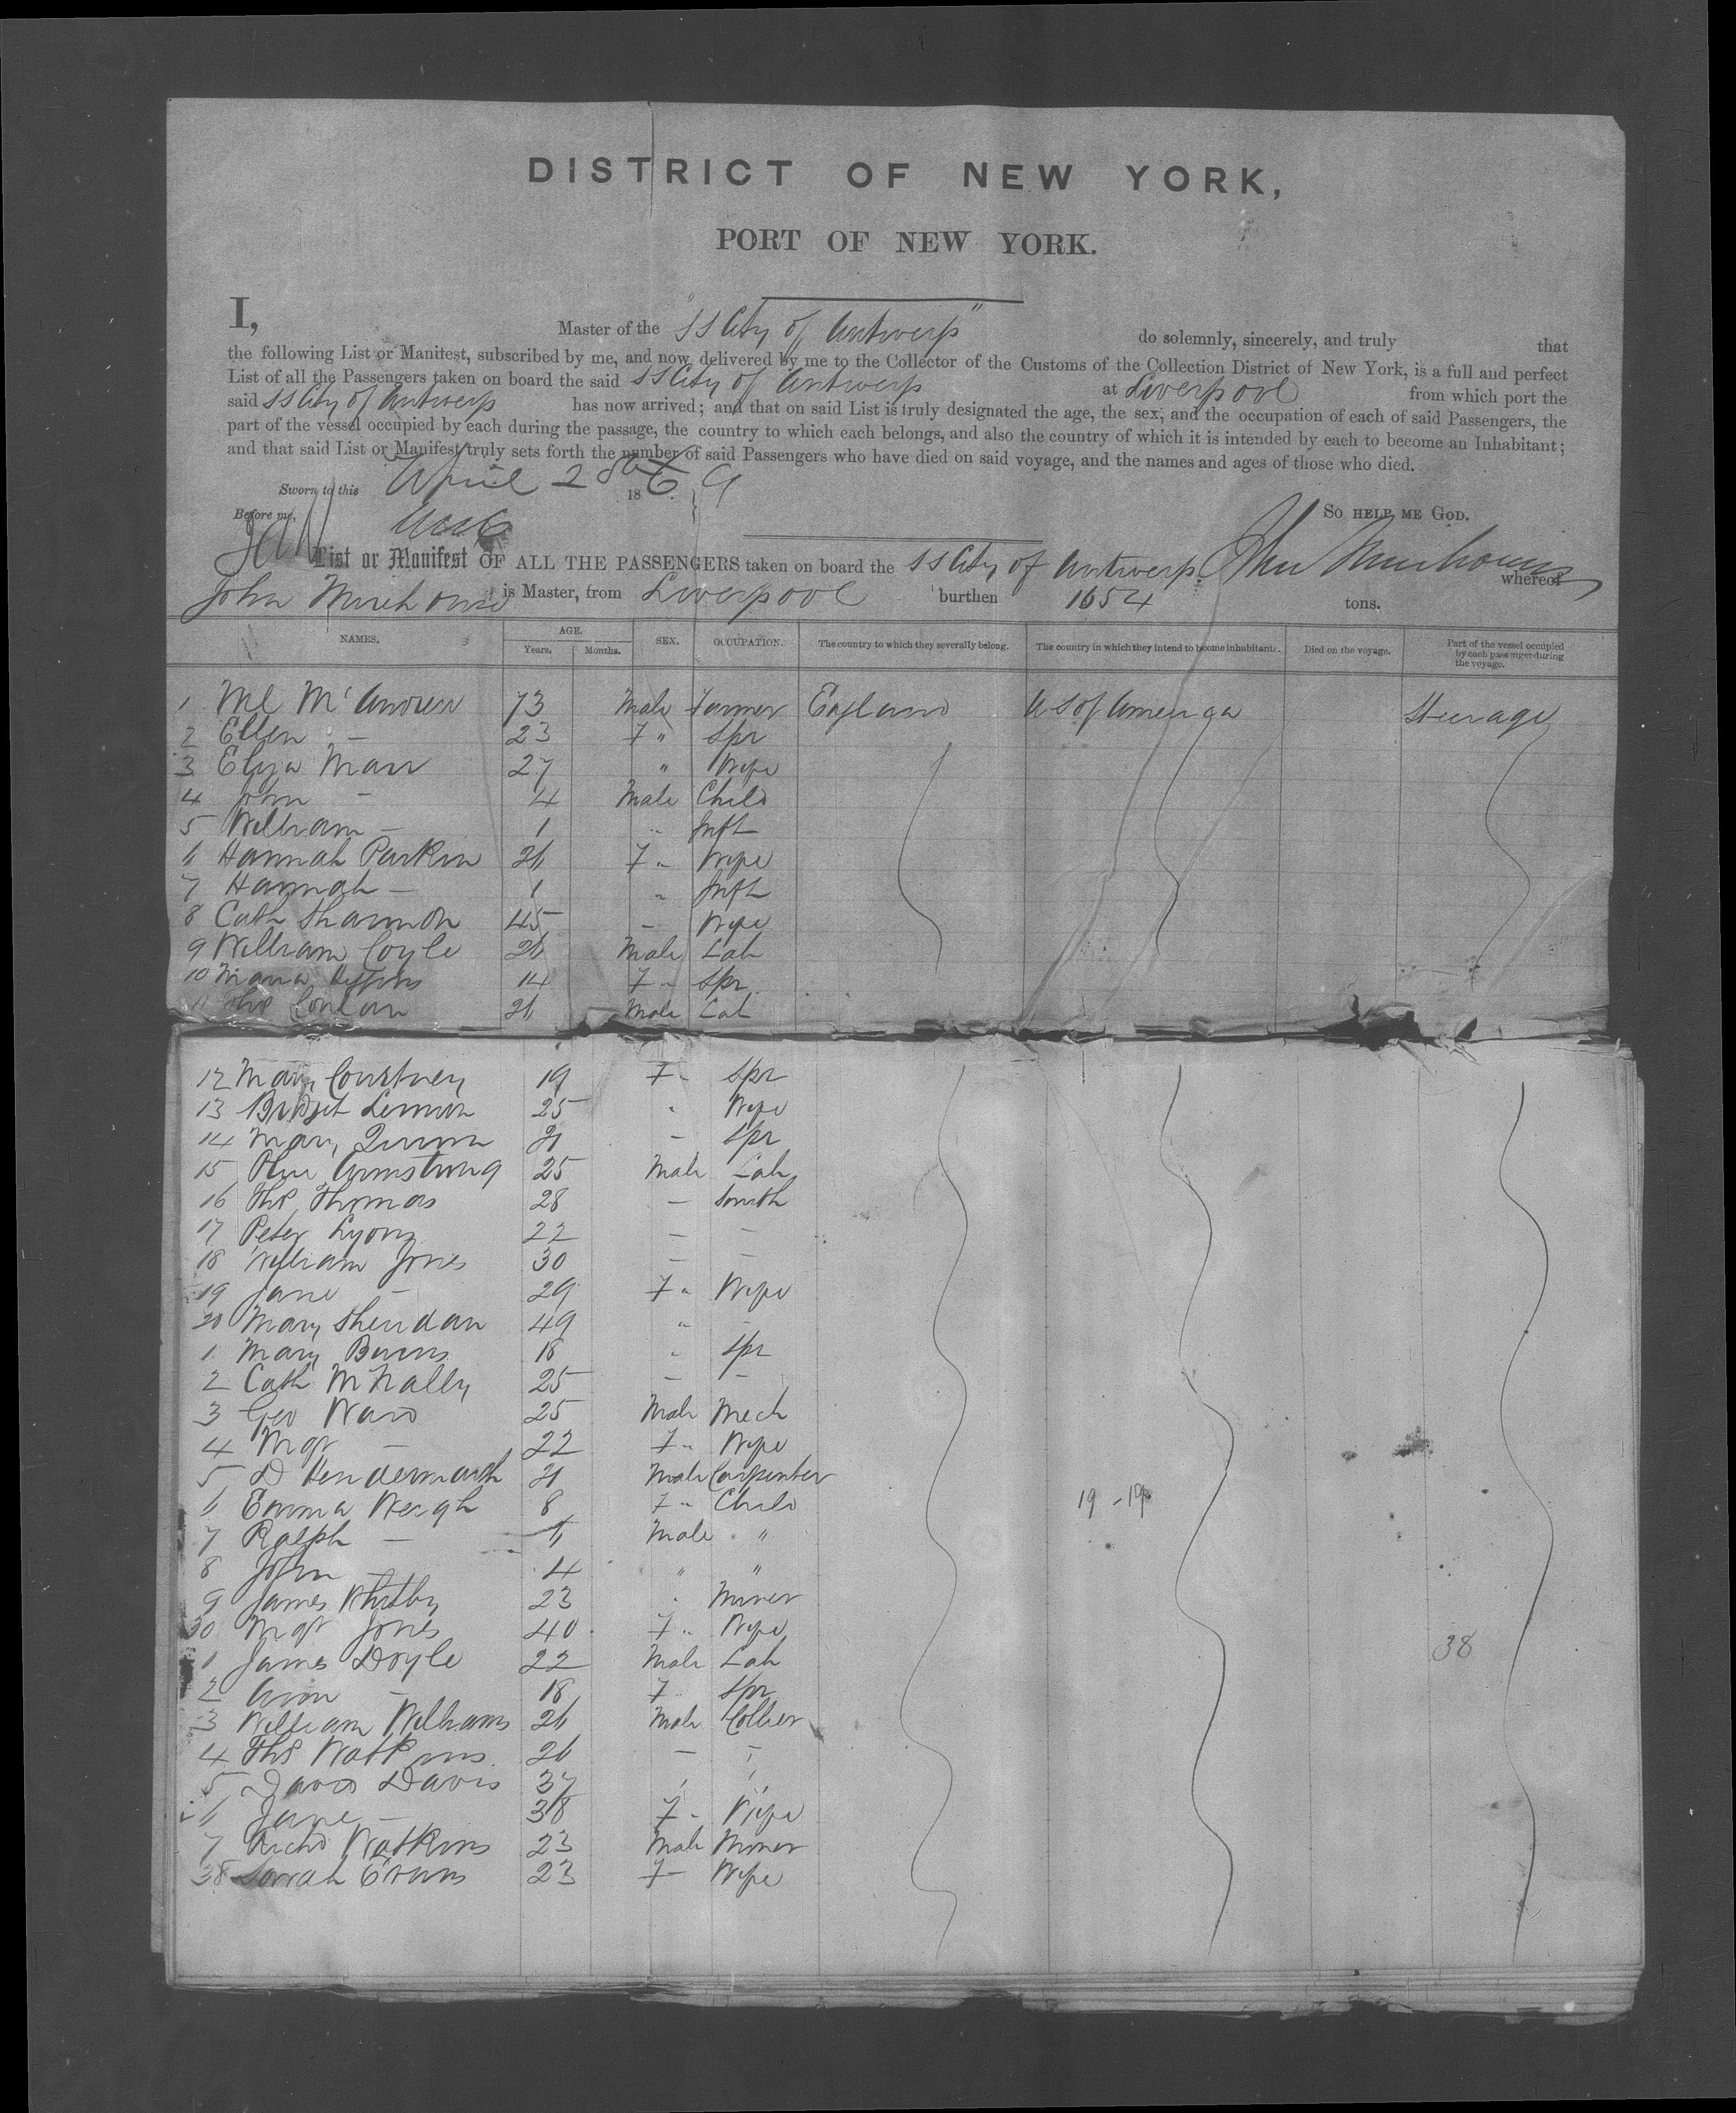 DISTRICT OF NEW YORK,
PORT OF NEW YORK.
I, Master of the "SS City of Antwerp" do solemnly, sincerely, and truly that
the following List or Manifest, subscribed by me, and now delivered by me to the Collector of the Customs of the Collection District of New York, is a full and perfect
List of all the Passengers taken on board the said SS City of Antwerp at Liverpool from which port the
said SS City of Antwerp has now arrived; and that on said List is truly designated the age, the sex, and the occupation of each of said Passengers, the
part of the vessel occupied by each during the passage, the country to which each belongs, and also the country of which it is intended by each to become an Inhabitant;
and that said List or Manifest truly sets forth the number of said Passengers who have died on said voyage, and the names and ages of those who died.
Sworn to this April 28th 1869
Before me, So HELP ME GOD.
List or Manifest OF ALL THE PASSENGERS taken on board the SS City of Antwerp whereof
John Mirehouse is Master, from Liverpool burthen 1654 tons.
NAMES. AGE. Years. Months. SEX. OCCUPATION. The country to which they severally belong. The country in which they intend to become inhabitants. Died on the voyage. Part of the vessel occupied by each passenger during the voyage.
1 Ml McAndrew 73 Male Farmer England US of America Steerage
2 Ellen - 23 F " Spr
3 Eliza Marr 27 " Wife
4 John - 4 Male Child
5 William - 1 " Inft
6 Hannah Parkin 26 F " Wife
7 Hannah - 1 " Inft
8 Cath Shannon 45 - Wife
9 William Coyle 26 Male Lab
10 Maria 14 F " Spr
11 Thos Conlan 26 Male Lab
12 Mary Courtney 19 F " Spr
13 Bridget Lennon 25 " Wife
14 Mary Quinn 21 - Spr
15 Armstrong 25 Male Lab
16 Thos Thomas 28 - Smith
17 Peter Lyons 22 - -
18 William Jones 30 - -
19 Jane - 29 F " Wife
20 Mary Sheridan 49 " -
1 Mary Burns 18 " Spr
2 Cath McNally 25 - -
3 Geo Ward 25 Male Mech
4 Mgt - 22 F " Wife
5 D Hendermarsh 21 Male Carpenter
6 Emma Weigh 8 F " Child
7 Ralph - 6 Male "
8 John - 4 " "
9 James Whitby 23 " Miner
30 Mgt Jones 40 F " Wife
1 James Doyle 22 Male Lab
2 Ann - 18 F Spr
3 William Williams 26 Male Collier
4 Thos Watkins 26 - "
5 David Davis 37 " "
6 Jane - 38 F " Wife
7 Richd Watkins 23 Male Miner
38 Sarah Evans 23 F - Wife
19 - 19
38